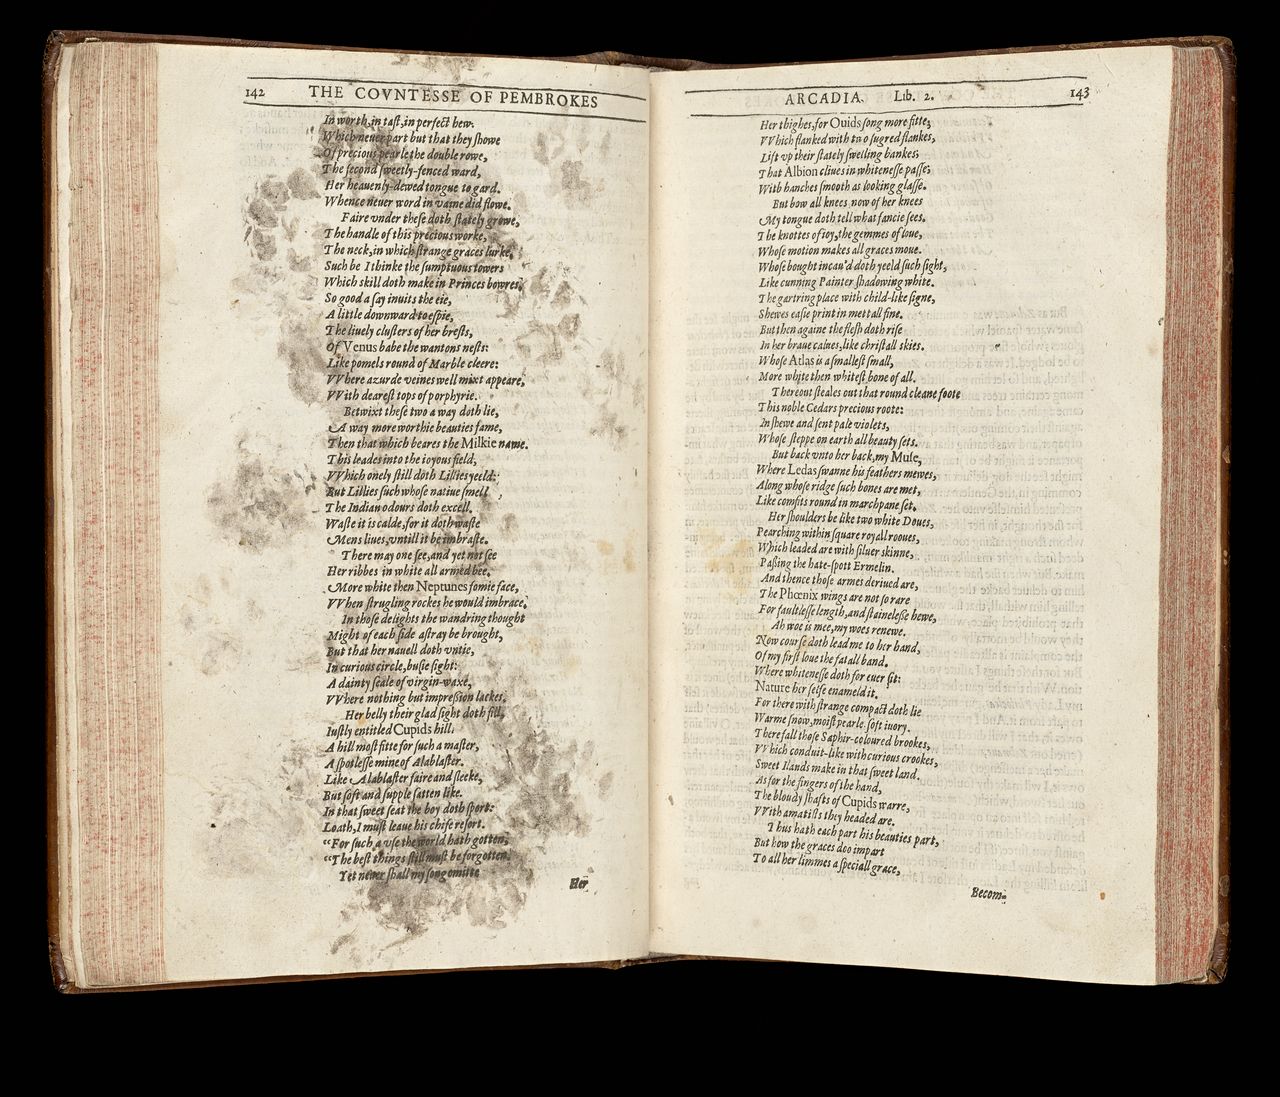 142 THE COVNTESSE OF PEMBROKES
In worth, in tast, in perfect hew.
Which neuer part but that they showe
Of precious pearle the double rowe,
The second sweetly-fenced ward,
Her heauenly-dewed tongue to gard.
Whence neuer word in vaine did flowe.
Faire vnder these doth stately growe,
The handle of this precious worke,
The neck, in which strange graces lurke.
Such be I thinke the sumptuous towers
Which skill doth make in Princes bowres,
So good a say inuits the eie,
A little downward to espie,
The liuely clusters of her brests,
Of Venus babe the wantons nests:
Like pomels round of Marble cleere:
VVhere azurde veines well mixt appeare,
VVith dearest tops of porphyrie.
Betwixt these two a way doth lie,
A way more worthie beauties fame,
Then that which beares the Milkie name.
This leades into the ioyous field,
VVhich onely still doth Lillies yeeld:
But Lillies such whose natiue smell
The Indian odours doth excell.
Waste it is calde, for it doth waste
Mens liues, vntill it be imbraste.
There may one see, and yet not see
Her ribbes in white all armed bee.
More white then Neptunes fomie face,
VVhen strugling rockes he would imbrace.
In those delights the wandring thought
Might of each side astray be brought,
But that her nauell doth vntie,
In curious circle, busie sight:
A dainty seale of virgin-waxe,
VVhere nothing but impression lackes.
Her belly their glad sight doth fill,
Iustly entitled Cupids hill.
A hill most fitte for such a master,
A spotlesse mine of Alablaster.
Like Alablaster faire and sleeke,
But soft and supple satten like.
In that sweet seat the boy doth sport:
Loath, I must leaue his chife resort.
“For such a vse the world hath gotten,
“The best things still must be forgotten.
Yet neuer shall my song omitte
Her
ARCADIA. Lib. 2. 143
Her thighes, for Ouids song more fitte;
VVhich flanked with two sugred flankes,
Lift vp their stately swelling bankes;
That Albion cliues in whitenesse passe;
With hanches smooth as looking glasse.
But bow all knees, now of her knees
My tongue doth tell what fancie sees.
The knottes of ioy, the gemmes of loue,
Whose motion makes all graces moue.
Whose bought incau'd doth yeeld such sight,
Like cunning Painter shadowing white.
The gartring place with child-like signe,
Shewes easie print in mettall fine.
But then againe the flesh doth rise
In her braue calues, like christall skies.
Whose Atlas is a smallest small,
More white then whitest bone of all.
Thereout steales out that round cleane foote
This noble Cedars precious roote:
In shewe and sent pale violets,
Whose steppe on earth all beauty sets.
But back vnto her back, my Muse,
Where Ledas swanne his feathers mewes,
Along whose ridge such bones are met,
Like comfits round in marchpane set.
Her shoulders be like two white Doues,
Pearching within square royall rooues,
Which leaded are with siluer skinne,
Passing the hate-spott Ermelin.
And thence those armes deriued are,
The Phœnix wings are not so rare
For faultlesse length, and stainelesse hewe,
Ah woe is mee, my woes renewe.
Now course doth lead me to her hand,
Of my first loue the fatall band.
Where whitenesse doth for euer sit:
Nature her selfe enameld it.
For there with strange compact doth lie
Warme snow, moist pearle. soft iuory.
There fall those Saphir-coloured brookes,
VVhich conduit-like with curious crookes,
Sweet Ilands make in that sweet land.
As for the fingers of the hand,
The bloudy shafts of Cupids warre,
VVith amatists they headed are.
Thus hath each part his beauties part,
But how the graces doo impart
To all her limmes a speciall grace,
Becom-